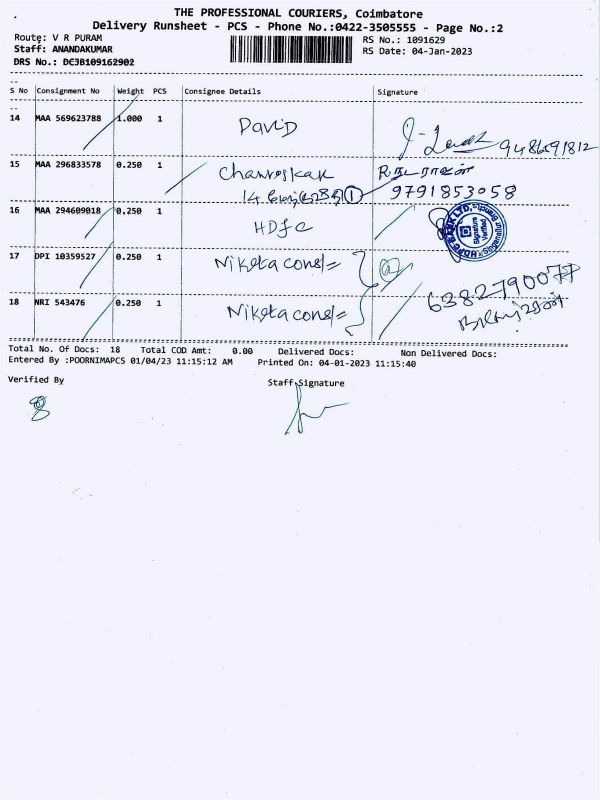 THE PROFESSIONAL COURIERS, Coimbatore
Delivery Runsheet - PCS - Phone No.:0422-3505555 - Page No.:2
Route: V R PURAM
RS No.: 1091629
Staff: ANANDAKUMAR
RS Date: 04-Jan-2023
DRS No.: DCJB109162902
S No Consignment No Weight PCS Consignee Details Signature
14 MAA 569623788 1.000 1 David
15 MAA 296833578 0.250 1 Chanroskar
9791853058
16 MAA 294609018 0.250 1 HDFC
HDFC BANK LTD,
Signature Verified
17 DPI 10359527 0.250 1 Niketa const=
6382790077
18 NRI 543476 0.250 1 Niketa const=
Total No. Of Docs: 18 Total COD Amt: 0.00 Delivered Docs: Non Delivered Docs:
Entered By :POORNIMAPCS 01/04/23 11:15:12 AM Printed On: 04-01-2023 11:15:40
Verified By
Staff Signature